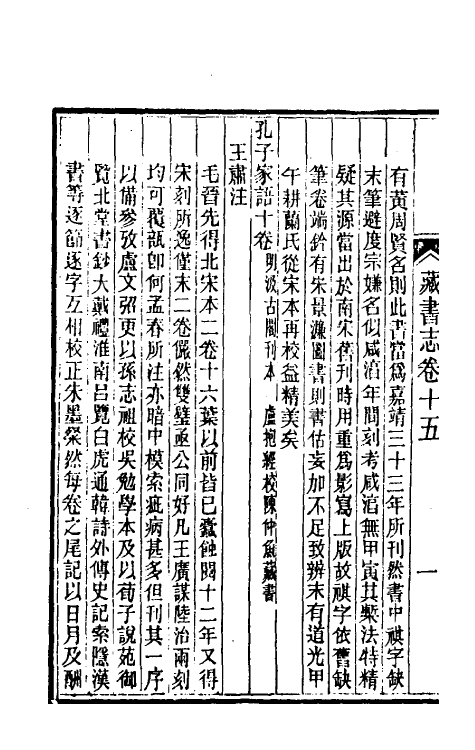 藏書志卷十五
一
有黃周賢名則此書當爲嘉靖三十三年所刊然書中祺字缺
末筆避度宗嫌名似咸湻年間刻考咸湻無甲寅其槧法特精
疑其源當出於南宋舊刊時用重爲影寫上版故祺字依舊缺
筆卷端鈐有宋景濂圖書則書估妄加不足致辨末有道光甲
午耕蘭氏從宋本再校益精美矣
孔子家語十卷 明汲古閣刊本 盧抱經校陳仲魚藏書
王肅注
毛晉先得北宋本二卷十六葉以前皆已蠹蝕閱十二年又得
宋刻所逸僅末二卷儼然雙璧亟公同好凡王廣謀陸治兩刻
均可覆瓿卽何孟春所注亦暗中模索疵病甚多但刊其一序
以備參攷盧文弨更以孫志祖校吳勉學本及以荀子說苑御
覽北堂書鈔大戴禮淮南呂覽白虎通韓詩外傳史記索隱漢
書等逐篇逐字互相校正朱墨燦然每卷之尾記以日月及酬